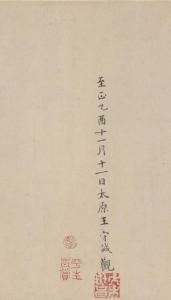 至正乙酉十一月十一日太原王守誠觀